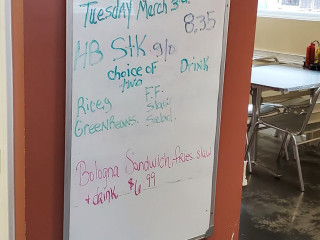 Tuesday March 3rd.
HB Stk g/o 8.35
choice of two Drink
Rice,g F.F.
GreenBeans. Slaw
Salad.
Bologna Sandwich, fries, slaw
+ drink $6.99